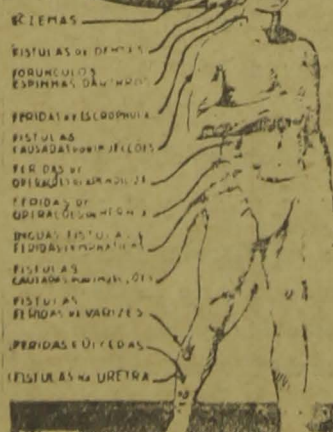 ECZEMAS
FISTULAS DE DENTES
FORUNCULOS
ESPINHAS DARTHROS
FERIDAS DE ESCROPHULA
FISTULAS
CAUSADAS POR INJECÇÕES
FERIDAS DE
OPERAÇÕES DE
FERIDAS DE
OPERAÇÕES DE HERNIA
INGUAS FISTULAS E
FERIDAS LYMPHATICAS
FISTULAS
CAUSADAS POR INJECÇÕES
FISTULAS
FERIDAS DE VARIZES
FERIDAS E ULCERAS
FISTULAS NA URETRA